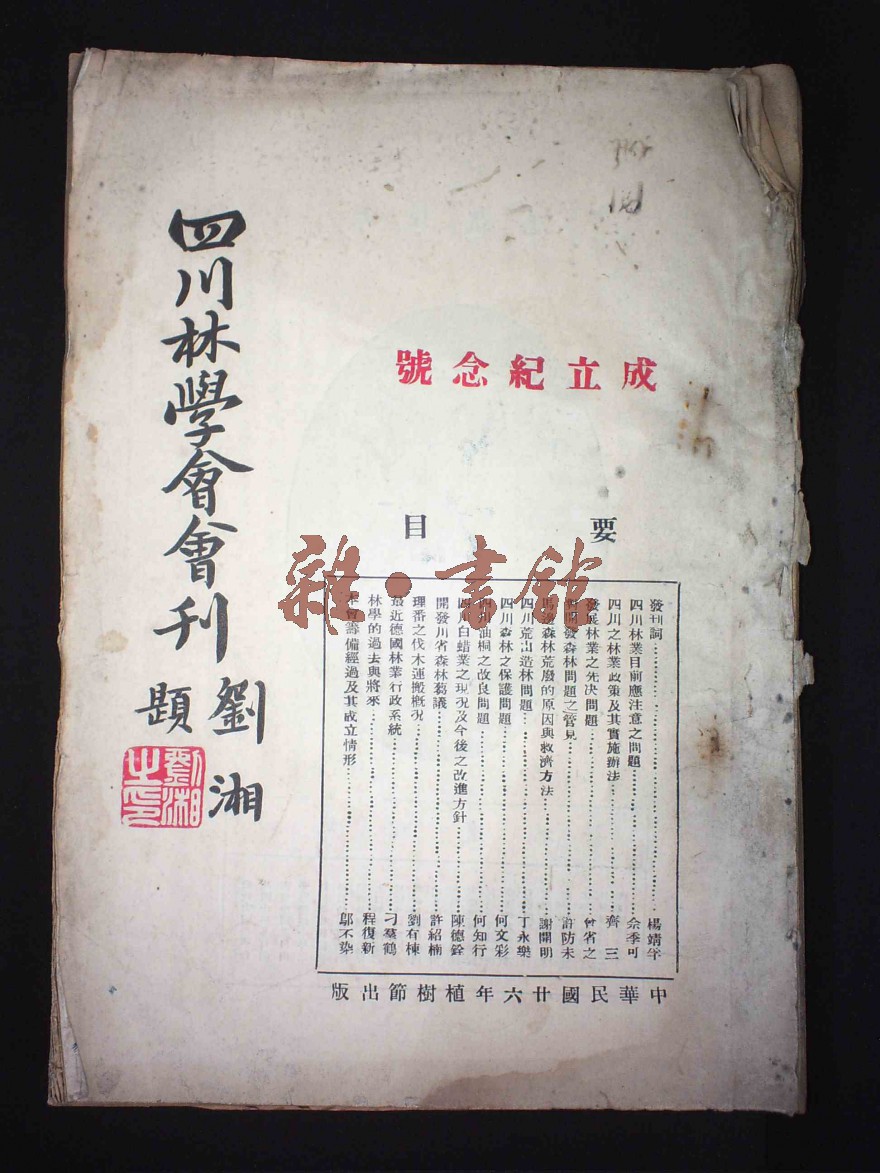 成立紀念號
要目
發刊詞……楊靖孚
四川林業目前應注意之問題……佘季可
四川之林業政策及其實施辦法……齊三
發展林業之先决問題……曾省之
開發森林問題之管見……許防未
馬邊森林荒廢的原因與救濟方法……謝開明
四川荒山造林問題……丁永樂
四川森林之保護問題……何文彩
四川油桐之改良問題……何知行
四川白蜡業之現况及今後之改進方針……陳德銓
開發川省森林芻議……許紹楠
理番之伐木運搬概况……劉有棟
最近德國林業行政系統……刁羣鶴
林學的過去與將來……程復新
本會籌備經過及其成立情形……鄔不染
中華民國廿六年植樹節出版
四川林學會會刊
劉湘
題
劉湘之印
雜·書館